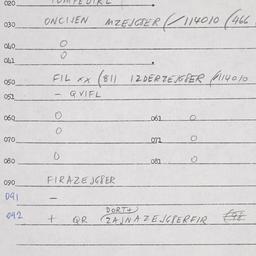 020
030 ONCIJEN MZEJGTER (/114010 (466
040 0
041 0
050 FIL xx (811 IZDERZEJGBER /114010
051 - GVIFL
060 0 061 0
0
070 071 0
080 0 081 0
090 FIRAZEJGBER
091 -
092 + QR (DORT+
ZAJNAZEJGBERFIR